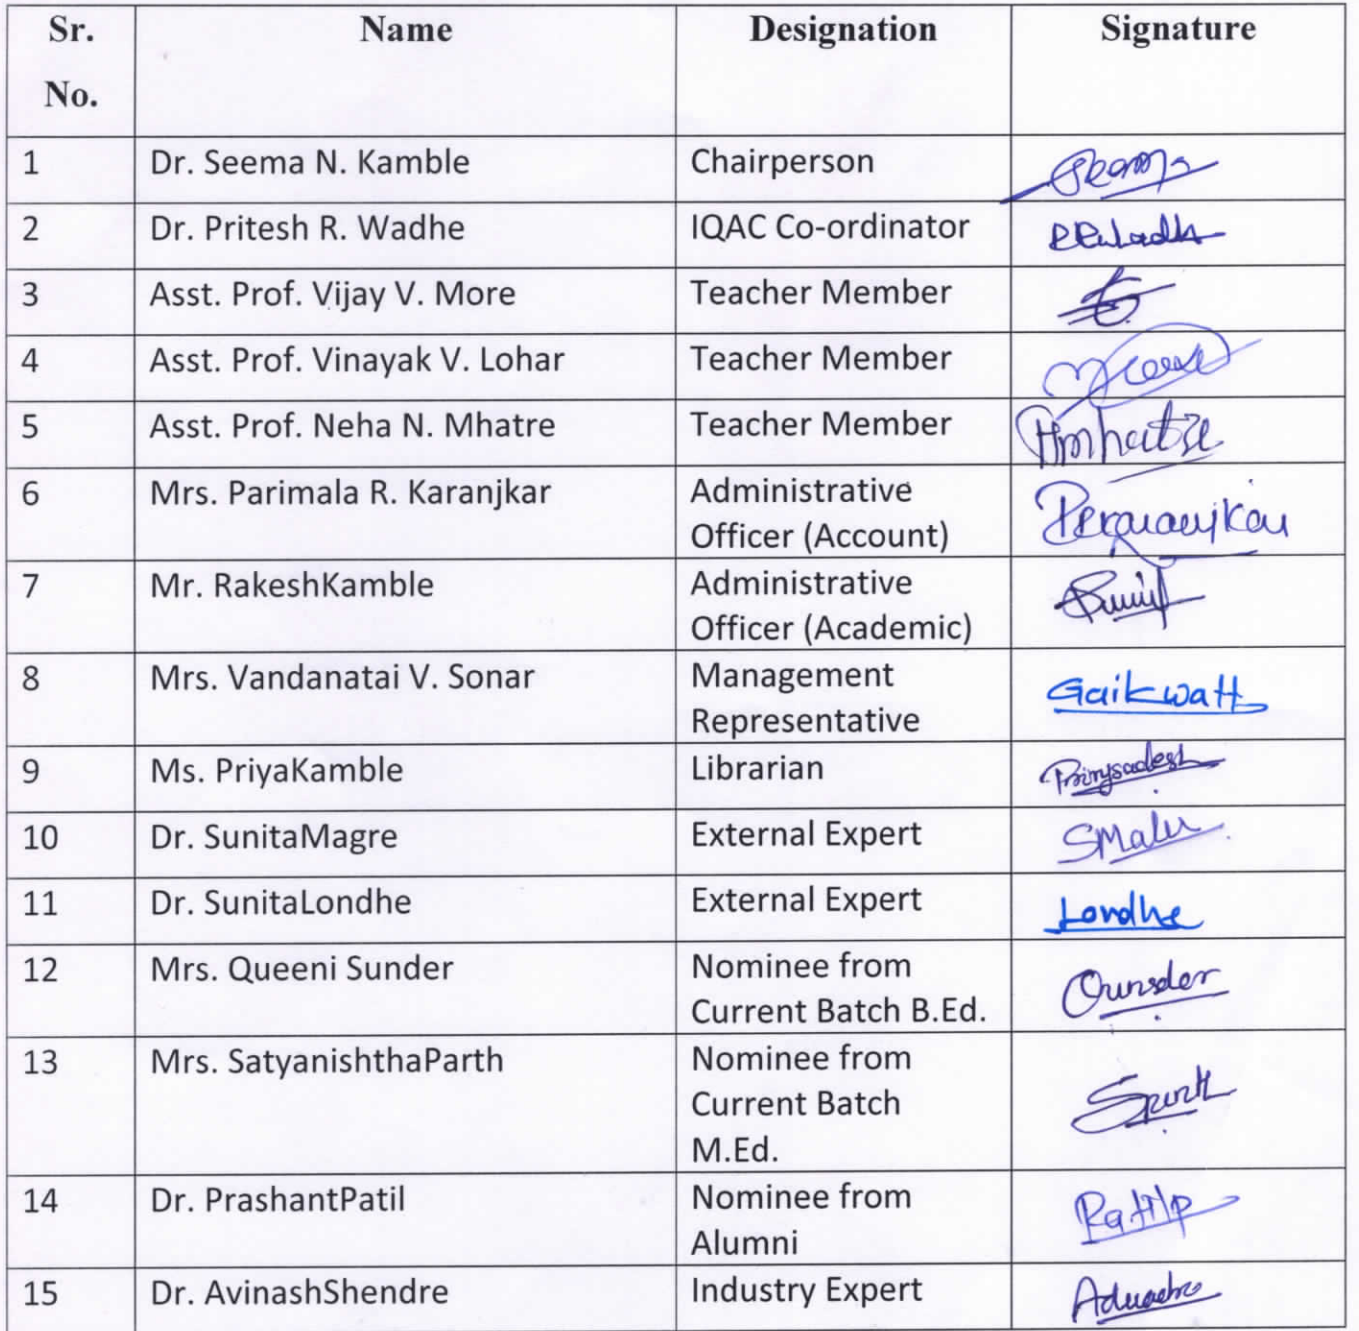 Sr. Name Designation Signature
No.
1 Dr. Seema N. Kamble Chairperson
2 Dr. Pritesh R. Wadhe IQAC Co-ordinator
3 Asst. Prof. Vijay V. More Teacher Member
4 Asst. Prof. Vinayak V. Lohar Teacher Member
5 Asst. Prof. Neha N. Mhatre Teacher Member
6 Mrs. Parimala R. Karanjkar Administrative
Officer (Account)
7 Mr. RakeshKamble Administrative
Officer (Academic)
8 Mrs. Vandanatai V. Sonar Management
Representative
9 Ms. PriyaKamble Librarian
10 Dr. SunitaMagre External Expert
11 Dr. SunitaLondhe External Expert Londhe
12 Mrs. Queeni Sunder Nominee from
Current Batch B.Ed.
13 Mrs. SatyanishthaParth Nominee from
Current Batch
M.Ed.
14 Dr. PrashantPatil Nominee from
Alumni
15 Dr. AvinashShendre Industry Expert